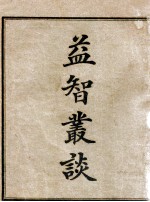 益智叢談